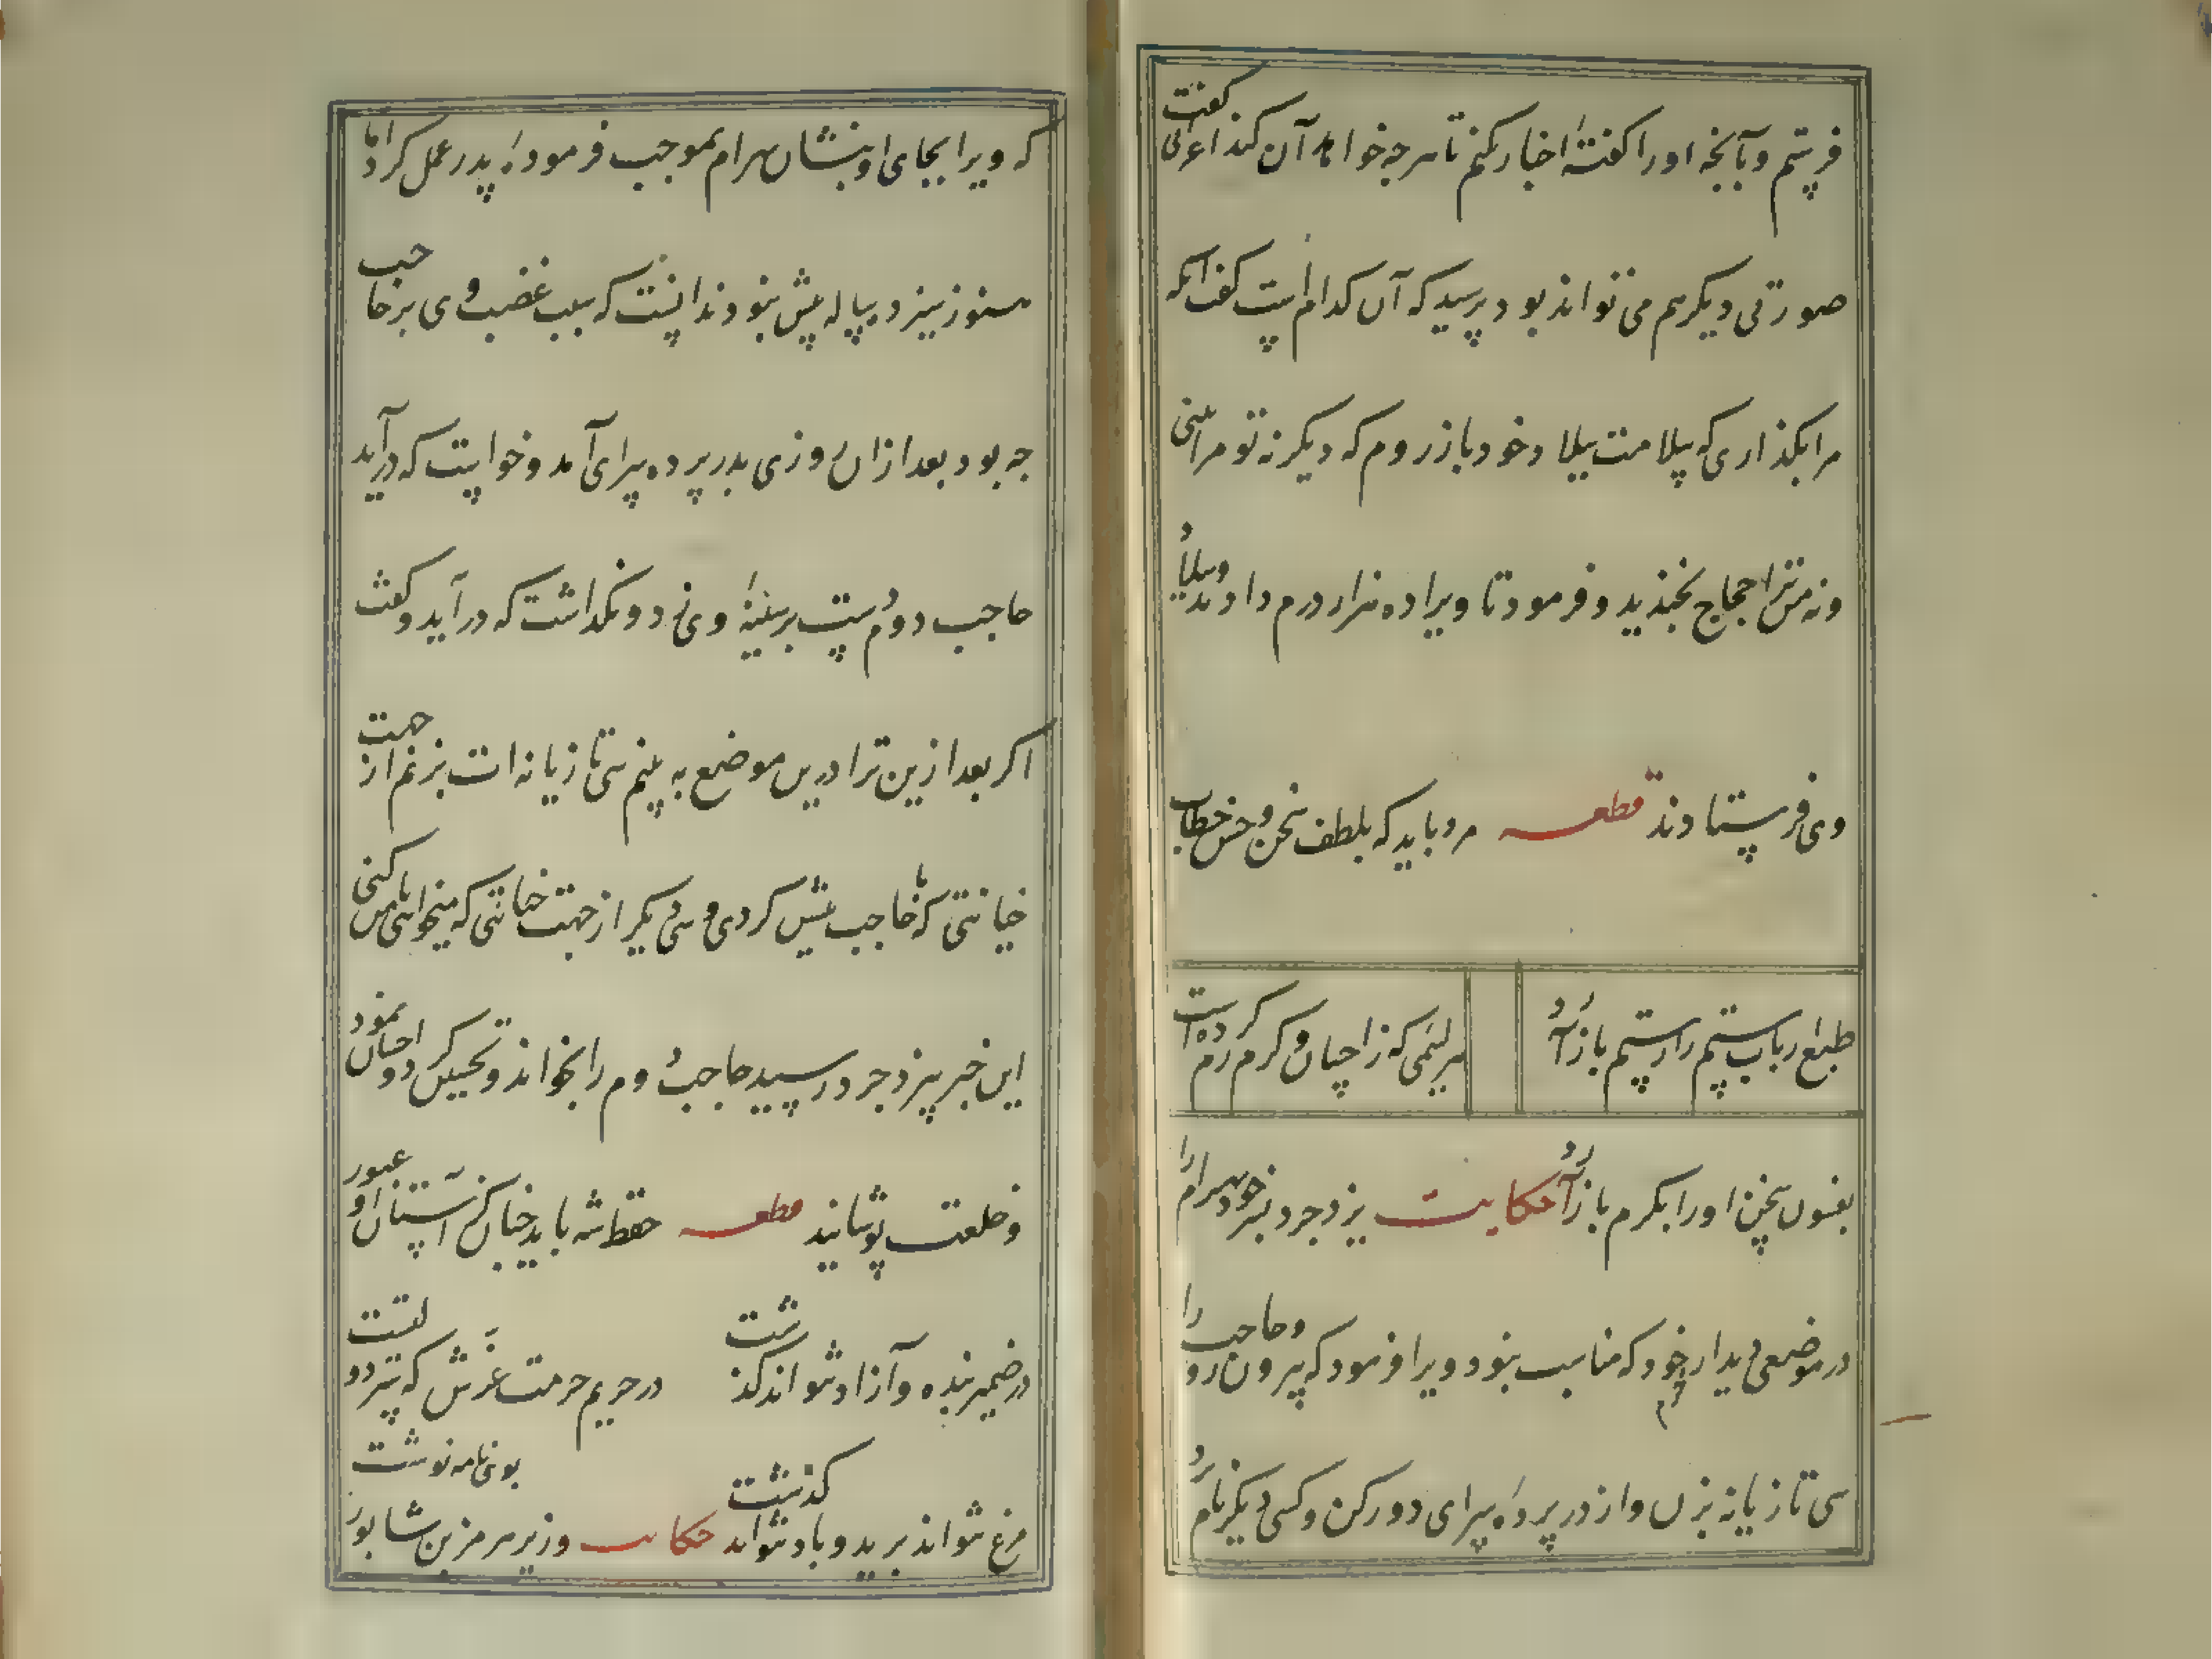 فرستم و بآنچه او را گفتهٔ اخبار کنم تا هرچه خواهد آن کند اعرابی گفت
صورتی دیگر هم می تواند بود پرسید که آن کدام است گفت آنکه
مرا بگذاری که بسلامت ببلاد خود باز روم که دیگر نه تو مرا بینی
و نه من ترا حجاج بخندید و فرمود تا ویرا ده هزار درم دادند و ببلاد
وی فرستادند قطعه مرد باید که بلطف سخن و حسن خطاب
طبع ارباب ستم را ز ستم باز آرد
هر لئیمی که ز احسان و کرم رم کرده است
بفسون سخن او را بکرم باز آرد حکایت یزدجرد پسر خود بهرام را
در موضعی دید از حرم خود که مناسب نبود ویرا فرمود که بیرون رو و حاجب را
سی تازیانه بزن و از در پرده سرای دور کن و کسی دیگر نام برد
که ویرا بجای او بنشان بهرام بموجب فرمودهٔ پدر عمل کرد اما
هنوز سیزده ساله بیش نبود ندانست که سبب غضب وی بر حاجب
چه بود بعد ازان روزی بدر پرده سرای آمد و خواست که درآید
حاجب دوم دست بر سینهٔ وی زد و نگذاشت که درآید و گفت
اگر بعد ازین ترا درین موضع به بینم سی تازیانه ات بزنم از جهت
خیانتی که با حاجب پیش کردی و سی دیگر از جهت خیانتی که میخواهی با من کنی
این خبر بیزدجرد رسید حاجب دوم را بخواند و تحسین کرد و احسان نمود
و خلعت پوشانید قطعه حفظ شه باید چنان کز آستان او عبور
در ضمیر بنده و آزاد نتواند گذشت
در حریم حرمت عزش که
مرغ نتواند پرید و باد نتواند گذشت حکایت وزیر هرمز بن شابور بوی نامه نوشت